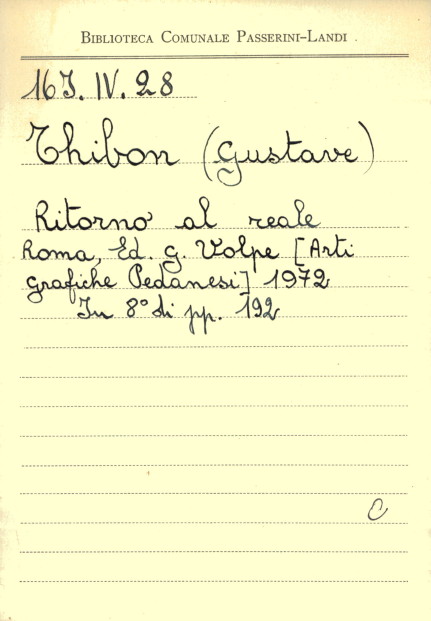 BIBLIOTECA COMUNALE PASSERINI-LANDI
16J. IV. 28
Thibon (Gustave)
Ritorno al reale
Roma, Ed. G. Volpe [Arti
grafiche Pedanesi] 1972
In 8° di pp. 192
C